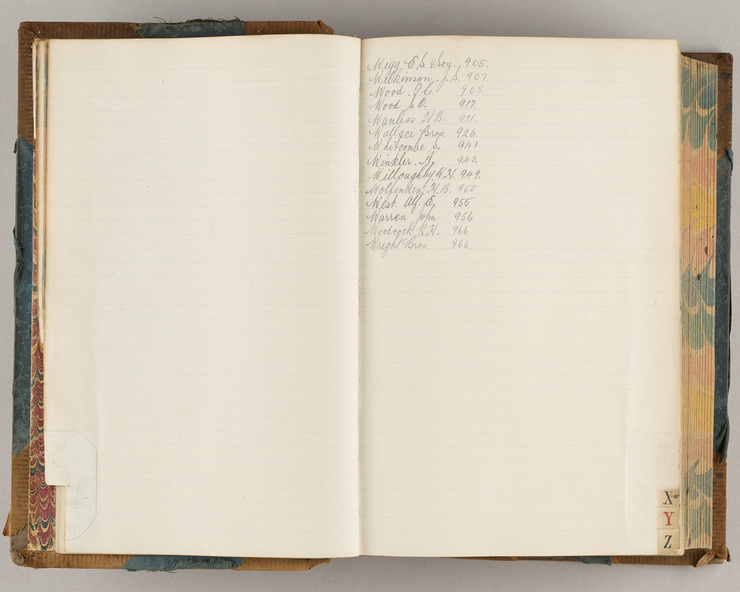 Wigg E.S & Son 905.
Wilkinson. J.S. 907.
Wood 908.
Wood J.O. 917.
Wanliss. W B. 921.
Wallace Bros. 926.
Whitcombe S. 941
Winkler. A. 943.
Willoughby W.H 949.
Wolfenden. W.B. 950
West Alf. E, 955
Warren John 956
Woodcock R.H. 966.
Wright Bros. 966.
X
Y
Z